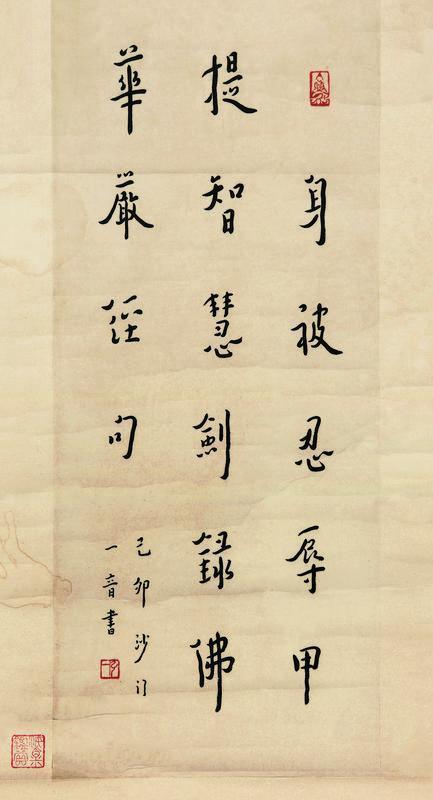 身被忍辱甲
提智慧劍錄佛
華嚴經句
己卯沙门
一音書